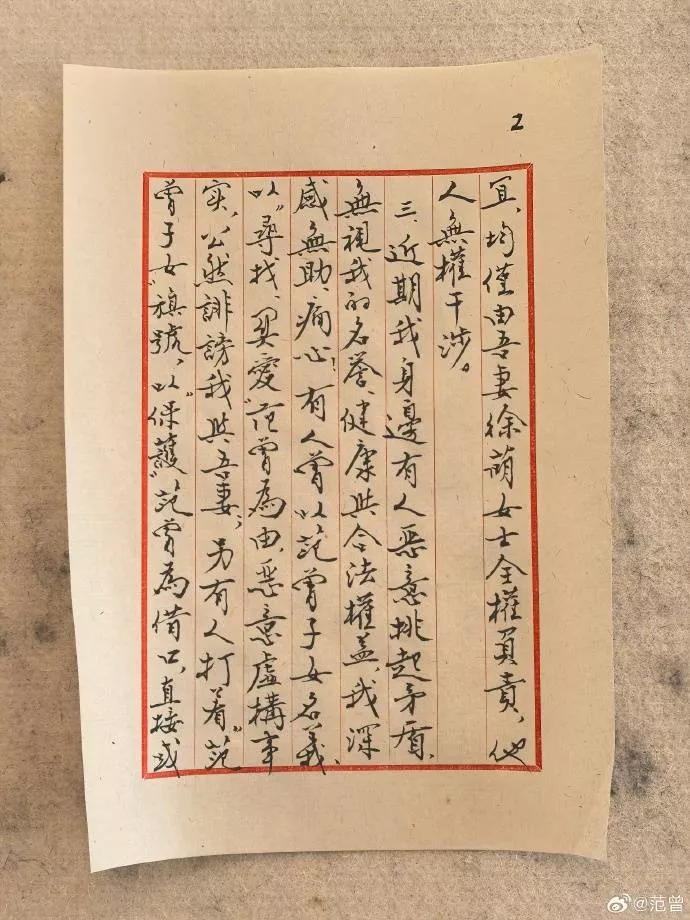 2
宜，均僅由吾妻徐萌女士全權負責，他
人無權干涉。
三、近期我身邊有人惡意挑起矛盾，
無視我的名譽、健康與合法權益，我深
感無助、痛心！有人曾以范曾子女名義，
以“尋找、関愛”范曾為由，惡意虛構事
實，公然誹謗我與吾妻，另有人打着“范
曾子女”旗號，以“保護”范曾為借口，直接或
@范曾